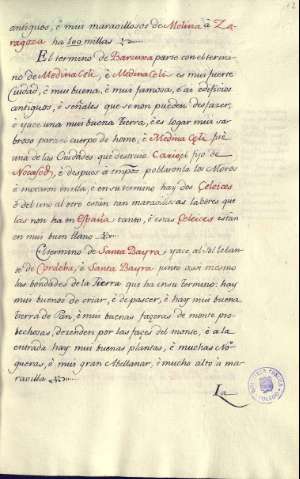 antiguos, é mui maravillosos de Molina à Za-
ragoza ha 100 millas
El termino de Barusma parte con el termi-
no de Medina Celi, è Medina Celi es mui fuerte
Ciudad, è mui buena, è mui famosa, è ai edificios
antiguos, è señales que se non pueden desfazer,
è yace una mui buena Tierra, è es logar mui sa-
broso para el cuerpo de home, è Medina Celi fue
una de las Ciudades que destruio Tarief fijo de
è despues à tiempo poblaronla los Moros
è moraron en illa, è en su termino hay dos
è del uno al otro están tan maravillosas labores que
las non ha en España: tanto, è esas están
en mui buen llano
El termino de Santa Bayra, yace al Sol levan-
te de Cordoba, è Santa Bayra punto asi mesmo
las bondades de la tierra que ha en su termino: hay
mui buenos de criar, è de pascer, è hay mui buena
tierra de Pan, è mui buenas façeras de monte pro-
bechosas, dezenden por las façes del monte, è à la
entrada hay mui buenas plantas, è muchas No-
gueras, è mui gran Abellanar, è mucho alto à ma-
ravilla
La